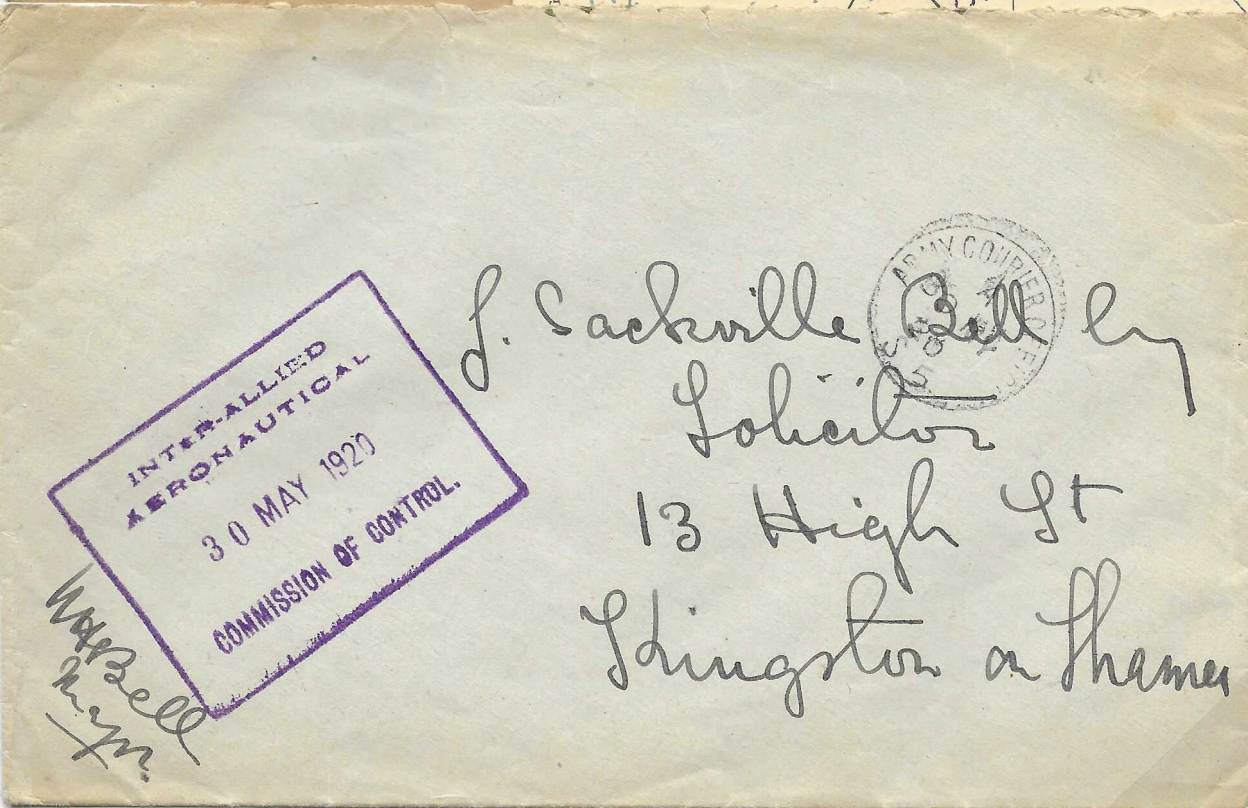 INTER-ALLIED
AERONAUTICAL
30 MAY 1920
COMMISSION OF CONTROL.
ARMY COURIER OFFICE
J. Sackville Bell Esq
Solicitor
13 High St
Kingston on Thames
Bell
Major.